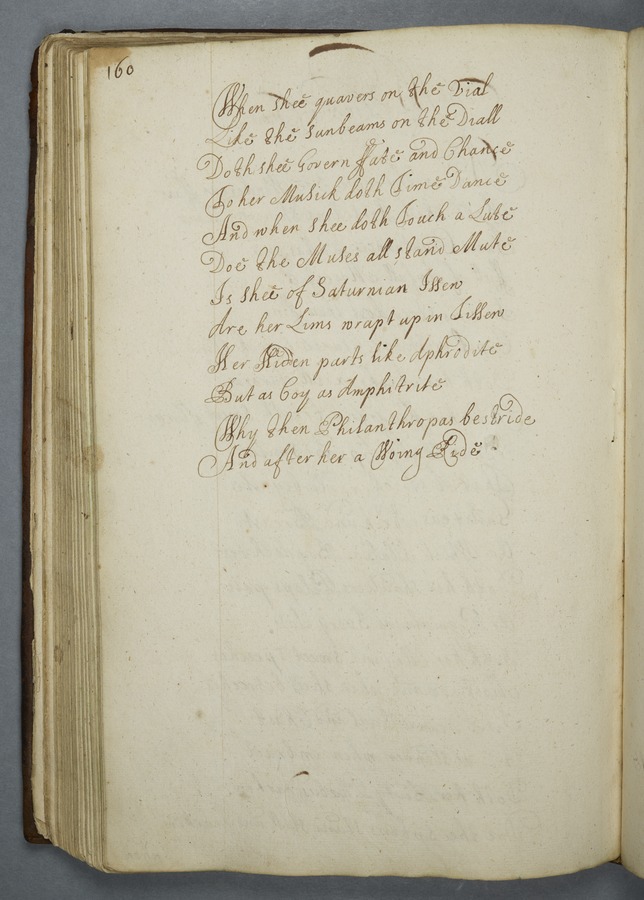 160
When shee quavers on the Vial
Like the Sunbeams on the Diall
Doth shee Govern ffate and Chance
To her Musick doth Time Dance
And when shee doth Touch a Lute
Doe the Muses all stand Mute
Is shee of Saturnian Issew
Are her Lims wrapt up in Tissew
Her Hiden parts like Aphrodite
But as Coy as Amphitrite
Why then Philanthropas bestride
And after her a Woing Ride